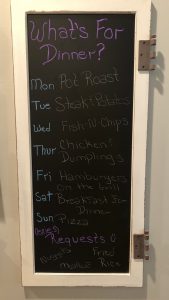 What's For
Dinner?
Mon Pot Roast
Tue Steak & Potatoes
Wed Fish-N-Chips
Thur Chicken &
Dumplings
Fri Hamburgers
on the Grill
Sat Breakfast For
Dinner
Sun Pizza
Requests
Fried
Rice